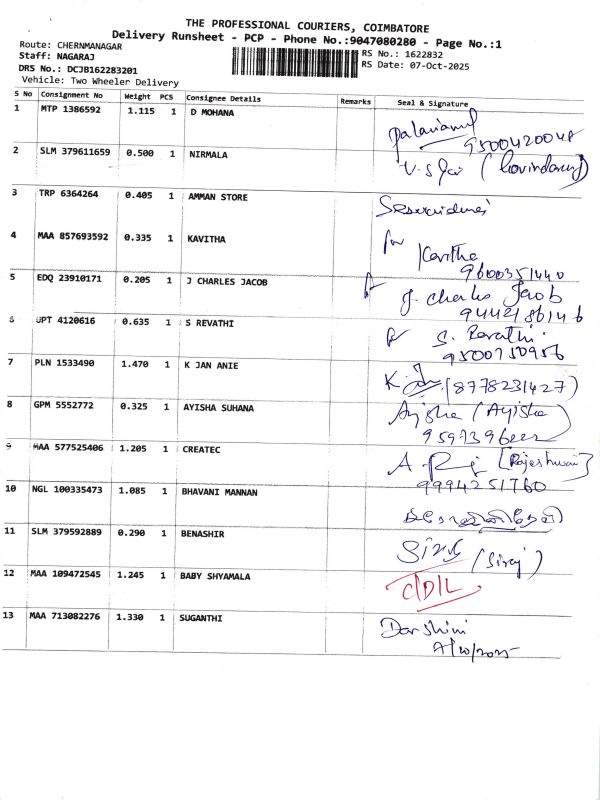 THE PROFESSIONAL COURIERS, COIMBATORE
Delivery Runsheet - PCP - Phone No.:9047080280 - Page No.:1
Route: CHERNMANAGAR
RS No.: 1622832
Staff: NAGARAJ
RS Date: 07-Oct-2025
DRS No.: DCJB162283201
Vehicle: Two Wheeler Delivery
S No Consignment No Weight PCS Consignee Details Remarks Seal & Signature
1 MTP 1386592 1.115 1 D MOHANA
9500420048
2 SLM 379611659 0.500 1 NIRMALA
3 TRP 6364264 0.405 1 AMMAN STORE
4 MAA 857693592 0.335 1 KAVITHA
for Kavitha
9600351440
5 EDQ 23910171 0.205 1 J CHARLES JACOB
J. Charles Jacob
9442186146
6 UPT 4120616 0.635 1 S REVATHI
S. Revathi
9500750956
7 PLN 1533490 1.470 1 K JAN ANIE
(8778231427)
8 GPM 5552772 0.325 1 AYISHA SUHANA
Ayisha (Ayisha)
9 MAA 577525406 1.205 1 CREATEC
[Rajeshwari]
9994251760
10 NGL 100335473 1.085 1 BHAVANI MANNAN
11 SLM 379592889 0.290 1 BENASHIR
(Siraj)
12 MAA 109472545 1.245 1 BABY SHYAMALA
C/D/L
13 MAA 713082276 1.330 1 SUGANTHI
Darshini
7/10/2025